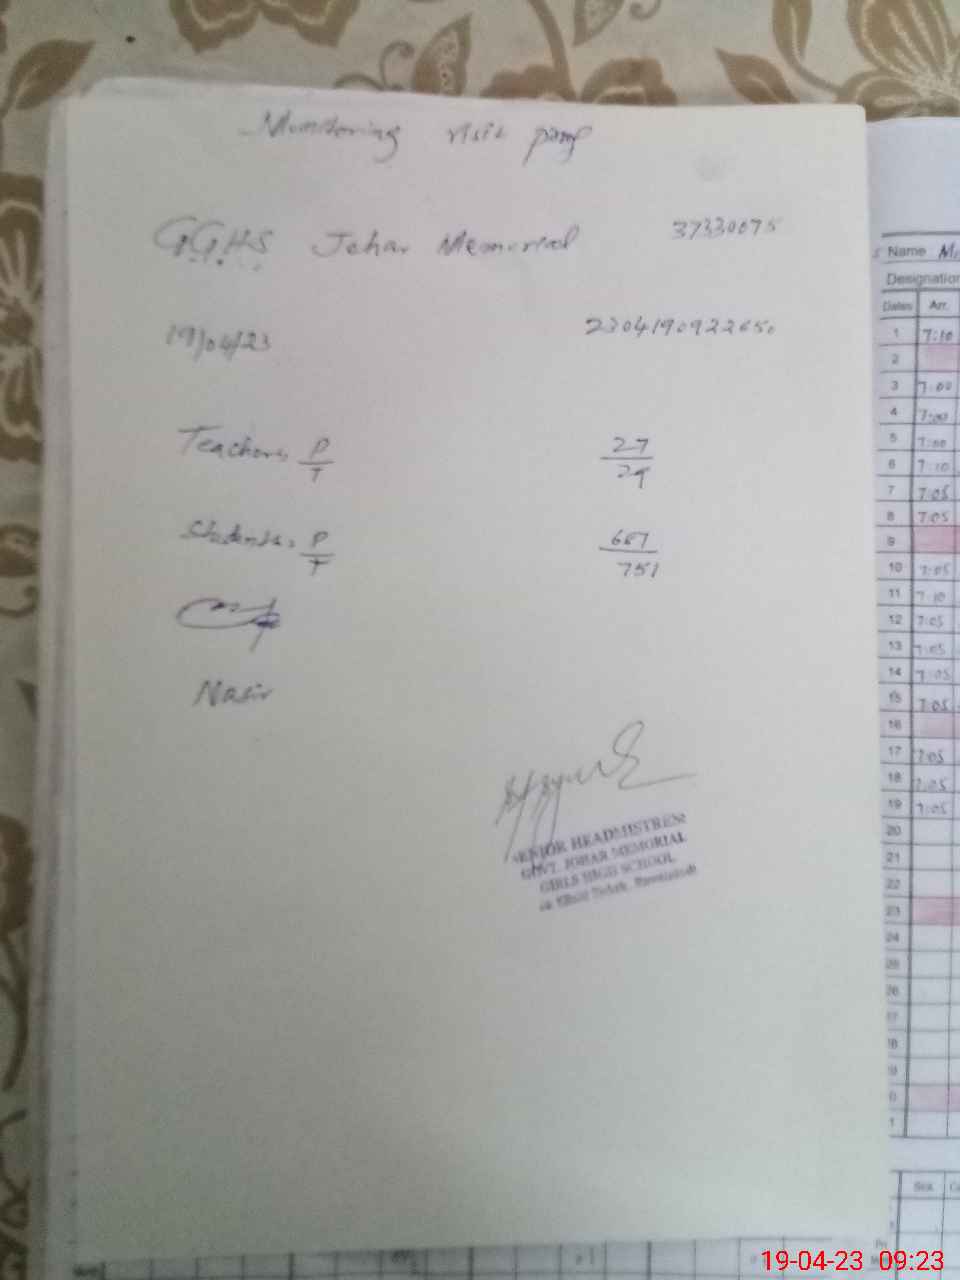 Monitoring visit proof
G.G.H.S Johar Memorial 37330075
19/04/23 230419092265
Teachers P/T 27/29
Students P/T 667/751
Nasir
SENIOR HEADMISTRESS
GOVT. JOHAR MEMORIAL
GIRLS HIGH SCHOOL
Name
Designation
Dates Arr.
1 7:10
2
3 7:00
4 7:00
5 7:00
6 7:10
7 7:05
8 7:05
9
10 7:05
11 7:10
12 7:05
13 7:05
14 7:05
15 7:05
16
17 7:05
18 7:05
19 7:05
20
21
22
23
24
25
26
19-04-23 09:23